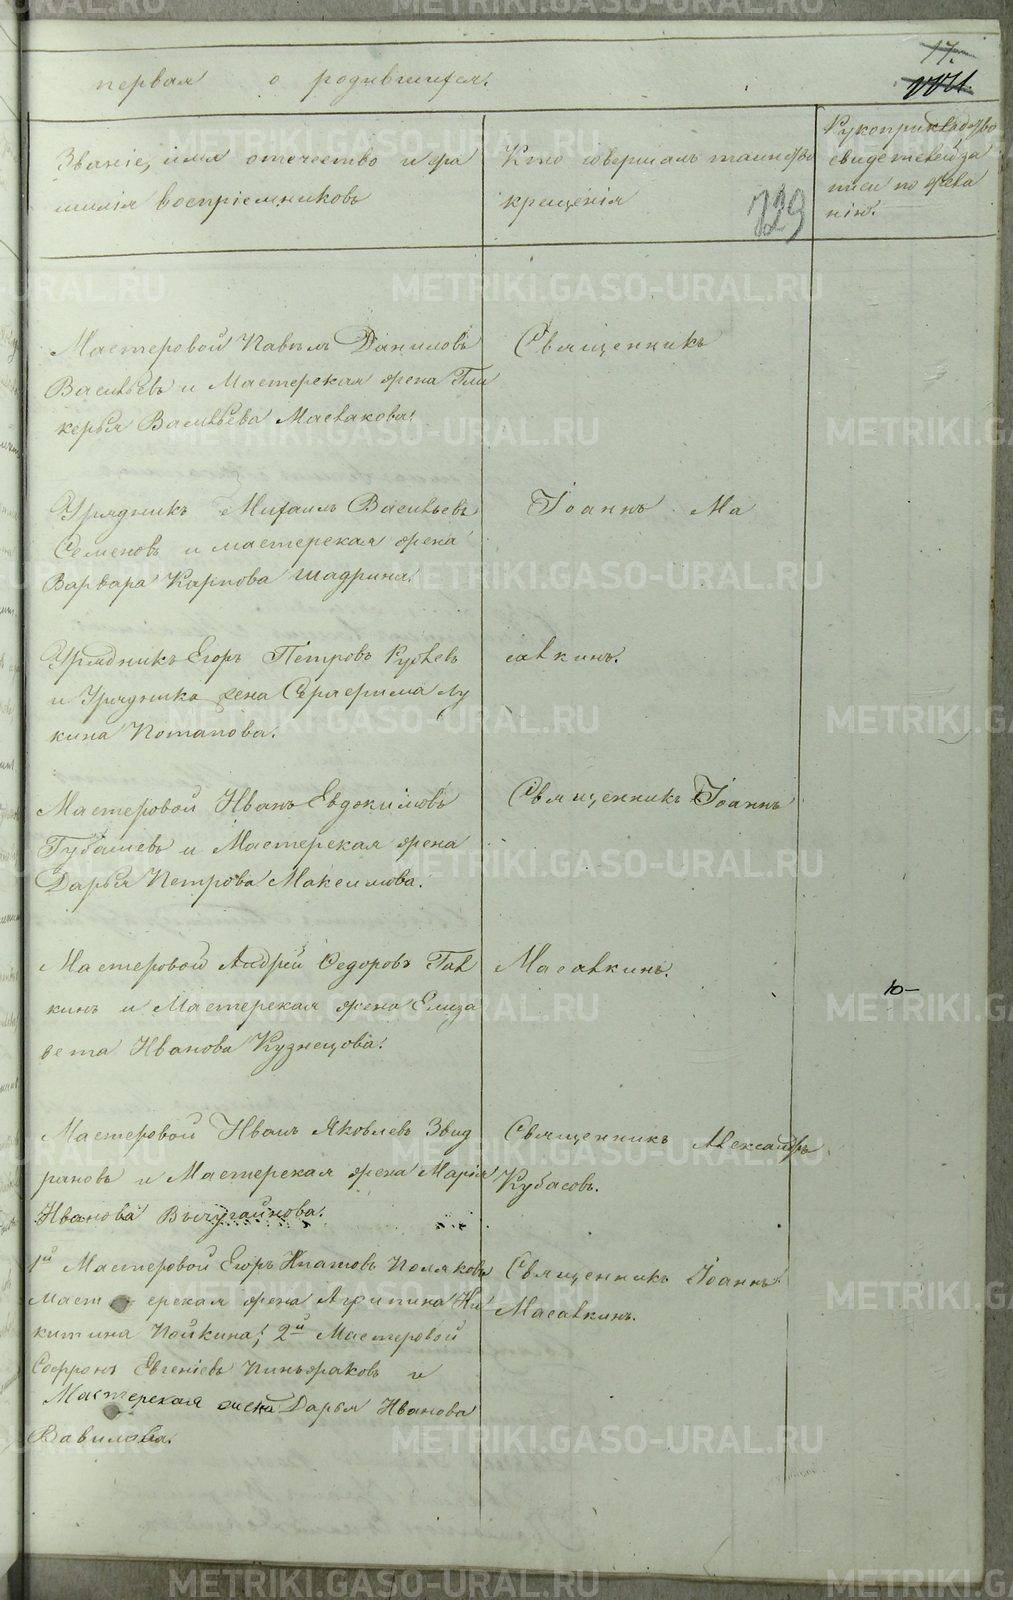 первая о родившихся.
Званіе, имя отечество и фа
милія воспріемниковъ
Кто совершалъ таинство
крещенія
729
Рукоприкладство
свидетелей за
писи по жела
нію.
Мастеровой Павелъ Даниловъ
Васильевъ и Мастерская жена Гли
керья Васильева Маслакова.
Священникъ
Урядникъ Михаилъ Васильевъ
Семеновъ и мастерская жена
Варвара Карпова Шадрина.
Іоаннъ Ма
Урядникъ Егоръ Петровъ
и Урядника жена Серафима Лу
кина Потапова.
салкинъ.
Мастеровой Иванъ Евдокимовъ
и Мастерская жена
Дарья Петрова Максимова.
Священникъ Іоаннъ
Мастеровой Андрей Федоровъ Гал
кинъ и Мастерская жена Елиза
вета Иванова Кузнецова.
Масалкинъ.
Мастеровой Иванъ Яковлевъ
и Мастерская жена Марья
Иванова
Священникъ Александръ
Кубасовъ.
1й Мастеровой Егоръ Ипатовъ Поляковъ
мастерская жена Агрипина Ни
китина Пойкина; 2й Мастеровой
Софронъ Евгеніевъ и
Мастерская жена Дарья Иванова
Вавилова.
Священникъ Іоаннъ
Масалкинъ.
METRIKI.GASO-URAL.RU